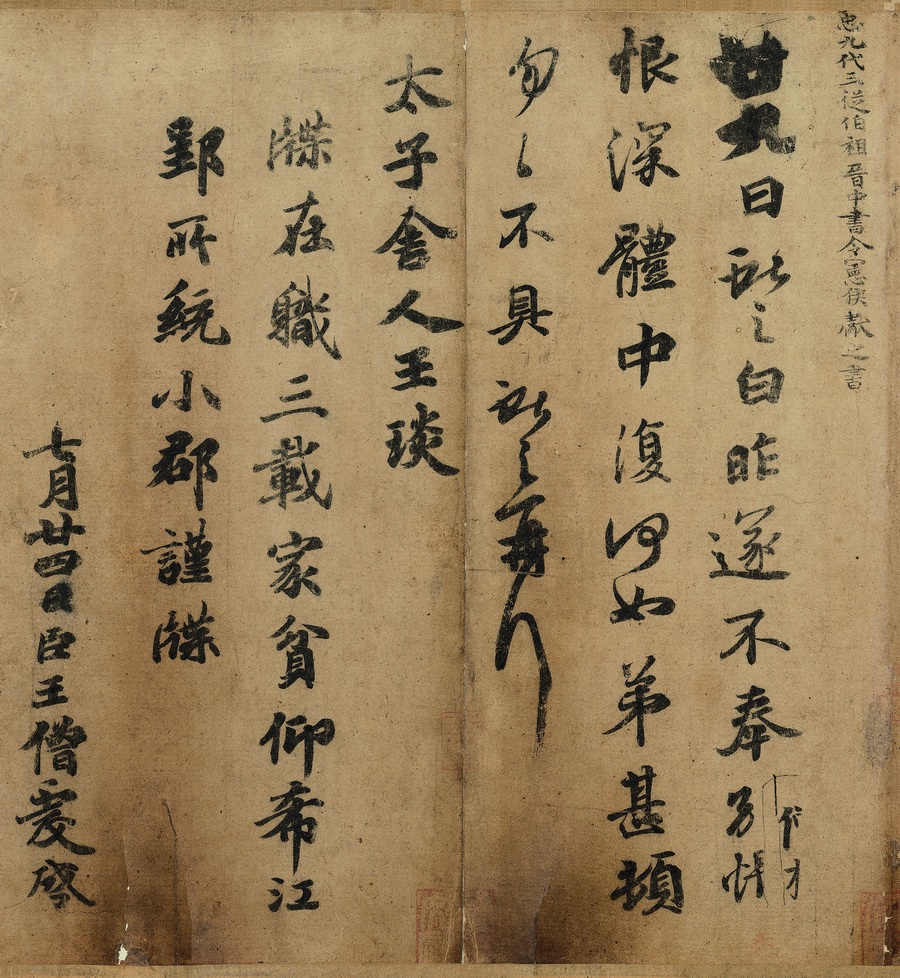 𢘑九代三從伯祖晉中書令憲侯獻之書
廿九日獻之白昨遂不奉別悵
恨深體中復何如弟甚頓
勿〻不具獻之再拜
太子舍人王琰
牒在職三載家貧仰希江
郢所統小郡謹牒
七月廿四日臣王僧虔啓